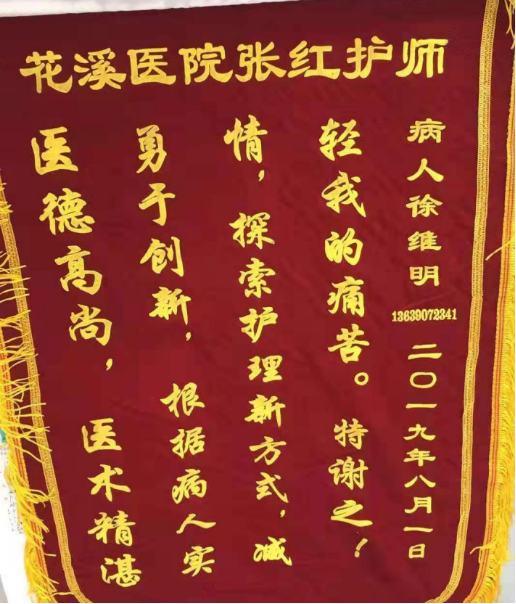 花溪医院张红护师
医德高尚，医术精湛
勇于创新，根据病人实
情，探索护理新方式，减
轻我的痛苦。特谢之！
病人徐维明
13639072341
二〇一九年八月一日